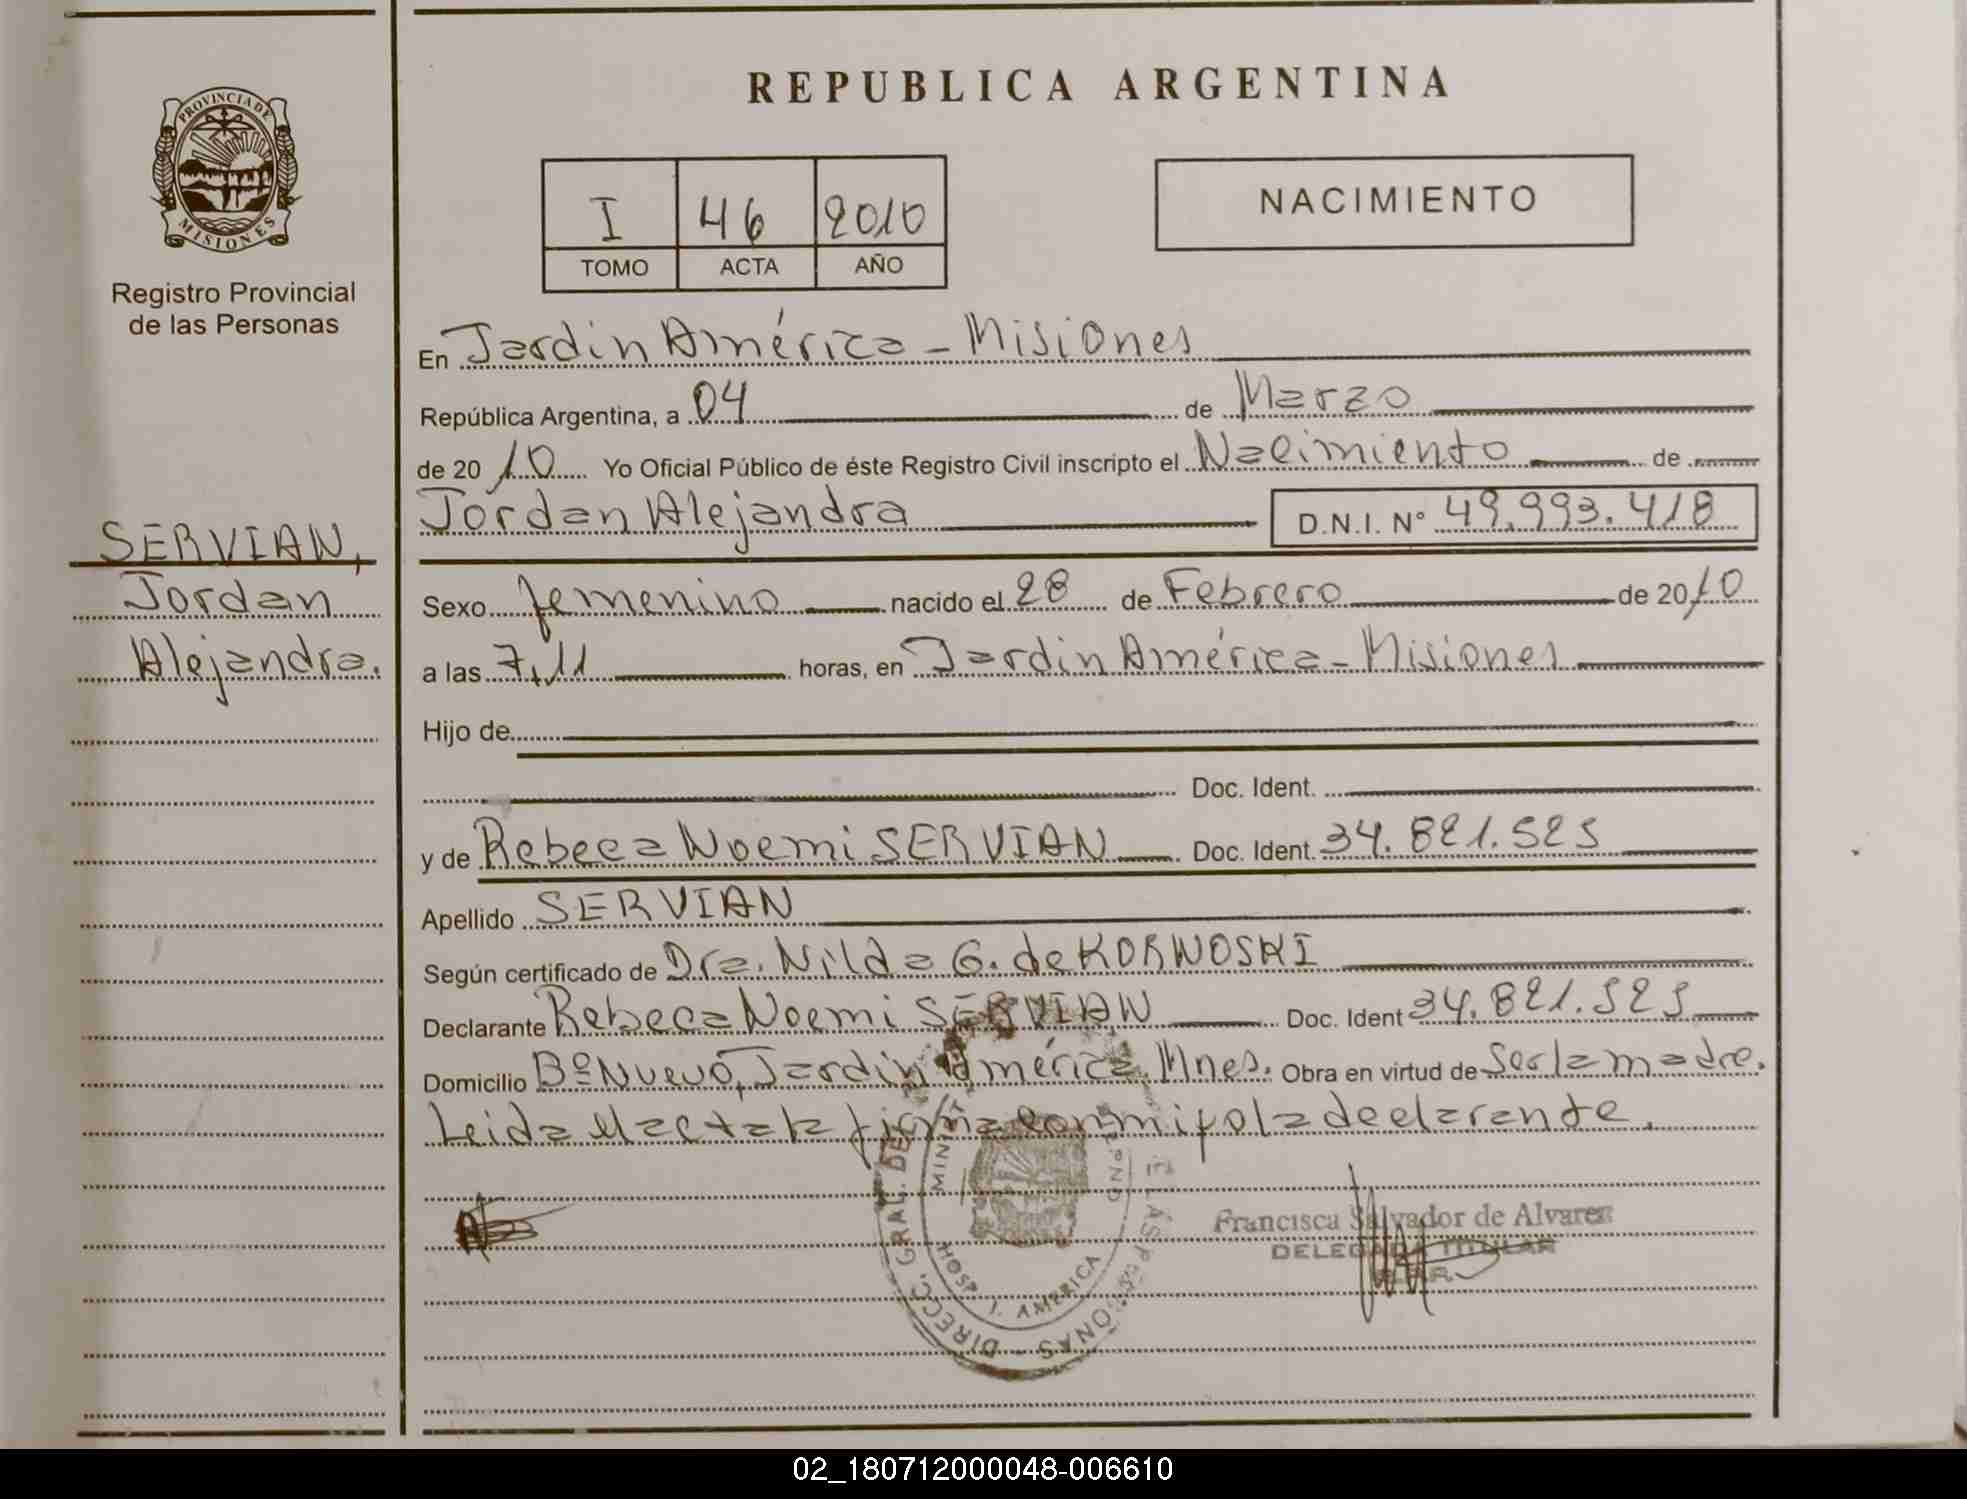 REPUBLICA ARGENTINA
PROVINCIA DE
MISIONES
Registro Provincial
de las Personas
I 46 2010
TOMO ACTA AÑO
NACIMIENTO
SERVIAN,
Jordan
Alejandra.
En Jardin América - Misiones
República Argentina, a 04 de Marzo
de 20 10 Yo Oficial Público de éste Registro Civil inscripto el Nacimiento de
Jordan Alejandra D.N.I. N° 49.993.418
Sexo femenino nacido el 28 de Febrero de 20 10
a las 7,11 horas, en Jardin América - Misiones
Hijo de
Doc. Ident.
y de Rebeca Noemi SERVIAN Doc. Ident. 34.821.525
Apellido SERVIAN
Según certificado de Dra. Nilda G. de KORNOSKI
Declarante Rebeca Noemi SERVIAN Doc. Ident 34.821.525
Domicilio Bº Nuevo, Jardin América, Mnes. Obra en virtud de Ser la madre.
Leida el acta la firma conmigo la declarante.
Francisca Salvador de Alvarez
DELEGADA TITULAR
DIRECC. GRAL. DE
HOSP. J. AMERICA
02_180712000048-006610